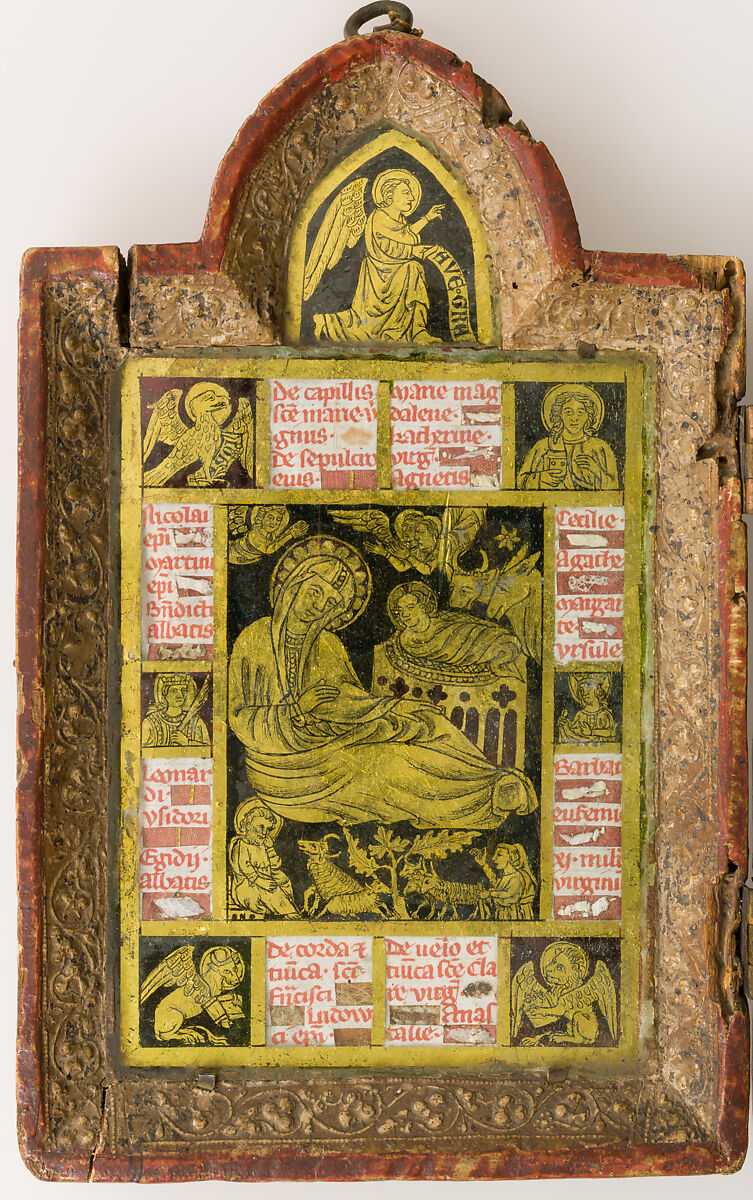 AVE·GRA
De capillis
sc̄e marie v̄
ginis·
de sepulcro
eius·
Marie mag
dalene·
katherine·
virg̃·
Agnetis
Nicolai
ep̄i
Martini
ep̄i
Bn̄dicti
abbatis
Cecilie·
Agathe
Margari
te·
Ursule
Leonar
di·
ysidori
Egidij·
abbatis
Barbar
eufemie
xj·mili
virgini
de corda ⁊
tūica· sc̄i
Frācisci
Ludowi
ci ep̄i·
De uelo et
tūica sc̄e Cla
re virg̃
Anas
tasie·